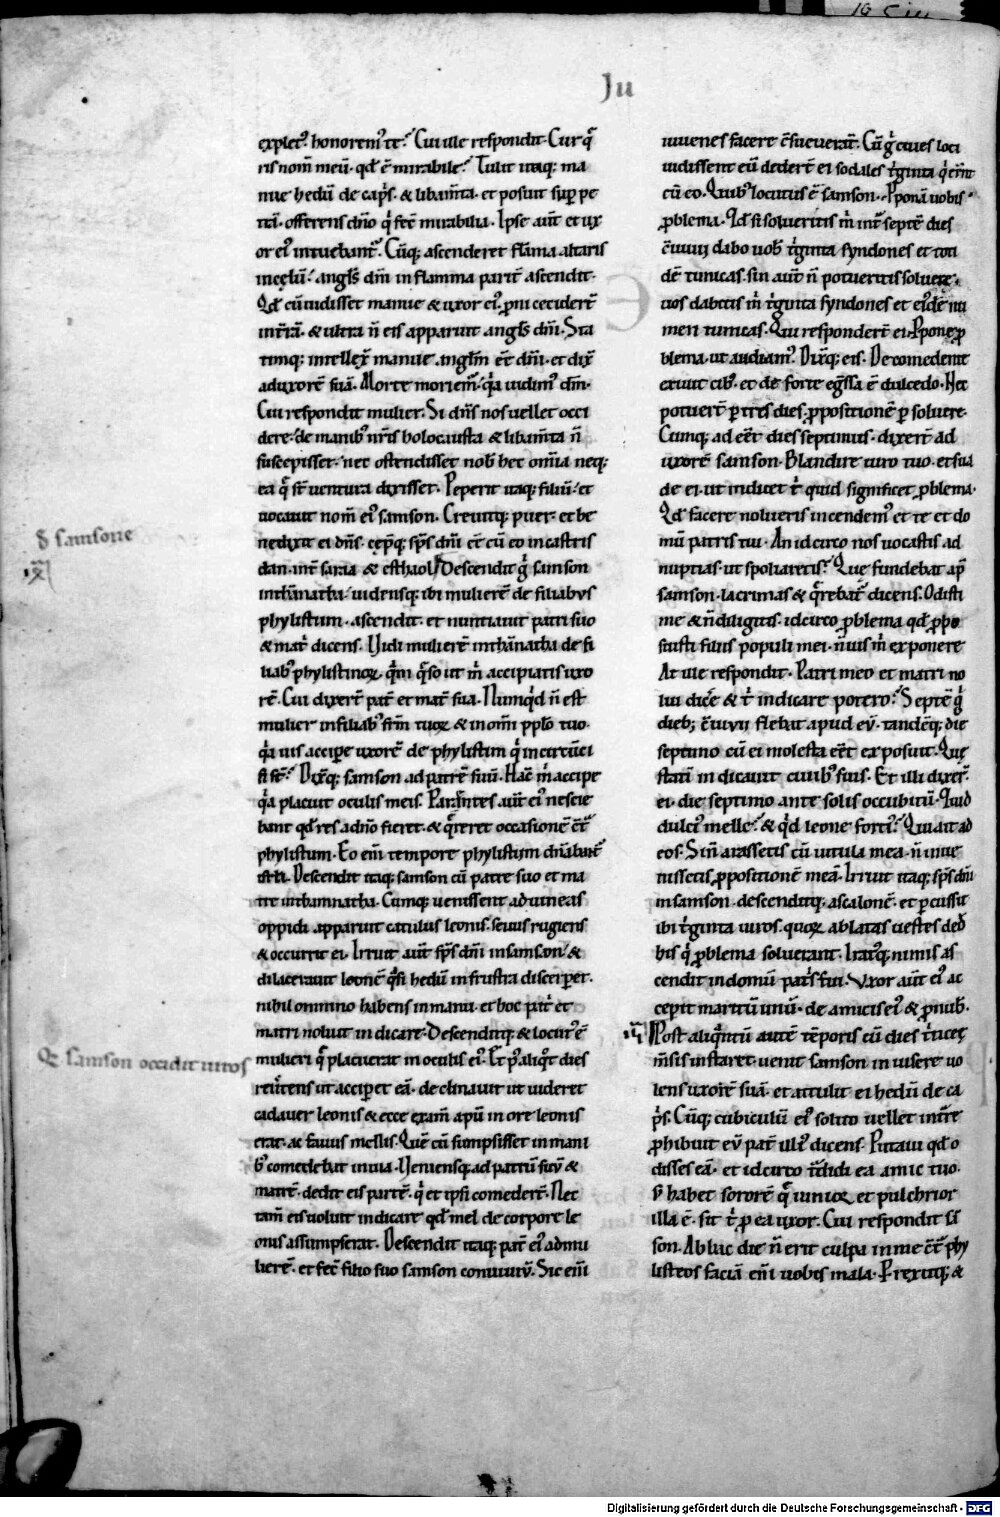 Ju
explet᷒ honorem᷒ te. Cui ille respondit. Cur q̄
ris nom̄ meū. qd̄ ē mirabile. Tulit itaq; ma
nue hedū de cap̄s. & libam̄ta. et posuit sup pe
tra. offerens dn̄o q̄ fec̄ mirabilia. Ipse aūt et ux
or ei᷒ intuebant᷒. Cūq; ascenderet flāma altaris
in celū. angls̄ dn̄i in flamma parit̄ ascendit.
Qd̄ cū uidisset manue & uxor ei᷒. p̄ni ceciderē
in t̄rā. & ultra n̄ eis apparuit angls̄ dn̄i. Sta
timq; intellex̄ manue. anglm̄ eē dn̄i. et dix̄
ad uxorē suā. Morte moriem᷒. q̄a uidim᷒ dm̄.
Cui respondit mulier. Si dn̄s nos uellet occi
dere. de manib᷒ nr̄is holocausta & libam̄ta n̄
suscepisset. nec ostendisset nob̄ hec om̄ia neq;
ea q̄ st̄ uentura dixisset. Peperit itaq; filiū. et
uocauit nom̄ ei᷒ samson. Creuitq; puer. et be
nedixit ei dn̄s. cepitq; sps̄ dn̄i eē cū eo in castris
dan. int̄ saraa & esthaol. Descendit g̊ samson
in thānatha. uidensq; ibi mulierē de filiabus
phylistiim. ascendit. et nuntiauit patri suo
& mat̄ dicens. Uidi mulierē in thānatha de fi
liab᷒ phylistinoꝝ. quā q̄so ut m̄ accipiatis uxo
rē. Cui dixer̄ pat̄ et mat̄ sua. Numq̄d n̄ est
mulier in filiab᷒ fr̄m tuoꝝ & in om̄i pp̄lo tuo.
q̄a uis accip̄e uxorē de phylistiim q̄ in circūci
si st̄. Dix̄q; samson ad patrē suū. Hāc m̄ accipe
q̄a placuit oculis meis. Parentes aūt ei᷒ nescie
bant qd̄ res a dn̄o fieret. & q̄reret occasionē cōt̄
phylistiim. Eo em̄ tempore phylistiim dn̄abant᷒
isr̄li. Descendit itaq; samson cū patre suo et ma
tre in thamnatha. Cumq; uenissent ad uineas
oppidi apparuit catulus leonis. seuus rugiens
& occurrit ei. Irruit aūt sps̄ dn̄i in samson. &
dilacerauit leonē q̄si hedū in frustra discerperet.
nihil omnino habens in manu. et hoc pat̄ et
matri noluit indicare. Descenditq; & locut᷒ ē
mulieri q̄ placuerat in oculis ei᷒. Et p᷒ aliq̄t dies
reūtens ut accip̄et eā. declinauit ut uideret
cadauer leonis & ecce exam̄ apū in ore leonis
erat. ac fauus mellis. Quē cū sumpsisset in mani
b᷒ comedebat in uia. Ueniensq; ad patrū suū &
matrē. dedit eis partē. q̄ et ipsi comederē. Nec
tam̄ eis uoluit indicare qd̄ mel de corpore le
onis assumpserat. Descendit itaq; pat̄ ei᷒ ad mu
lierē. et fec̄ filio suo samson conuiuiū. Sic em̄
iuuenes facere ōsueuerāt. Cū g̊ ciues loci
uidissent eū dederē ei sodales t̄ginta q̄ eēnt
cū eo. Quib᷒ locutus ē samson. Pponā uobis
ꝓblema. Qd̄ si solueritis m̄ int̄ septē dies
ōuiuii dabo uob̄ t̄ginta syndones et toti
dē tunicas. sin aūt n̄ potueritis soluere.
uos dabitis m̄ t̄ginta syndones et ei᷒dē nu
meri tunicas. Qui responderē ei. Ppone ꝓ
blema. ut audiam᷒. Dix̄q; eis. De comedente
exiuit cib᷒. et de forte eḡssa ē dulcedo. Nec
potuerē p̱ tris dies. ꝓpositionē p̱soluere.
Cumq; adeēt dies septimus. dixerē ad
uxorē samson. Blandire uiro tuo. et sua
de ei. ut indicet t̄ quid significet ꝓblema.
Qd̄ facere nolueris incendem᷒ et te et do
mū patris tui. An idcirco nos uocastis ad
nuptias. ut spoliaretis. Que fundebat ap̄
samson. lacrimas & q̄rebat᷒ dicens. Odisti
me & n̄ diligis. idcirco ꝓblema qd̄ ꝓpo
suisti filiis populi mei. n̄ uis m̄ exponere
At ille respondit. Patri meo et matri no
lui dicēe & t̄ indicare potero. Septē g̊
dieb; ōuiuii flebat apud eū. tandēq; die
septimo cū ei molesta eēt exposuit. Que
statī indicauit ciuib᷒ suis. Et illi dixer̄.
ei. die septimo ante solis occubitū. Quid
dulci᷒ melle. & q̄d leone forti᷒. Qui ait ad
eos. Si n̄ arassetis cū uitula mea. n̄ inue
nissetis ꝓpositionē meā. Irruit itaq; sps̄ dn̄i
in samson. descenditq; ascalonē. et percussit
ibi t̄ginta uiros. quoꝝ ablatas uestes ded̄
his q̄ ꝓblema soluerant. Irat᷒q; nimis as
cendit in domū pat̄s sui. Uxor aūt ei᷒ ac
cepit maritū unū. de amicis ei᷒ & ꝓnub̄.
Post aliq̄ntū autē tēporis cū dies t̄ticeę
m̄sis instaret. uenit samson inuisere uo
lens uxorē suā. et attulit ei hedū de ca
p̄s. Cūq; cubiculū ei᷒ solito uellet int̄re
ꝓhibuit eū pat̄ illi᷒ dicens. Putaui qd̄ o
disses eā. et idcirco t̄didi ea amic tuo.
s̄ habet sororē q̄ iunioꝝ et pulchrior
illa ē. sit t̄ ꝓ ea uxor. Cui respondit sā
son. Ab hac die n̄ erit culpa in me cōt̄ phy
listeos faciā em̄ uobis mala. Prexitq; &
đ samsone
Qz samson occidit uiros
Digitalisierung gefördert durch die Deutsche Forschungsgemeinschaft - DFG